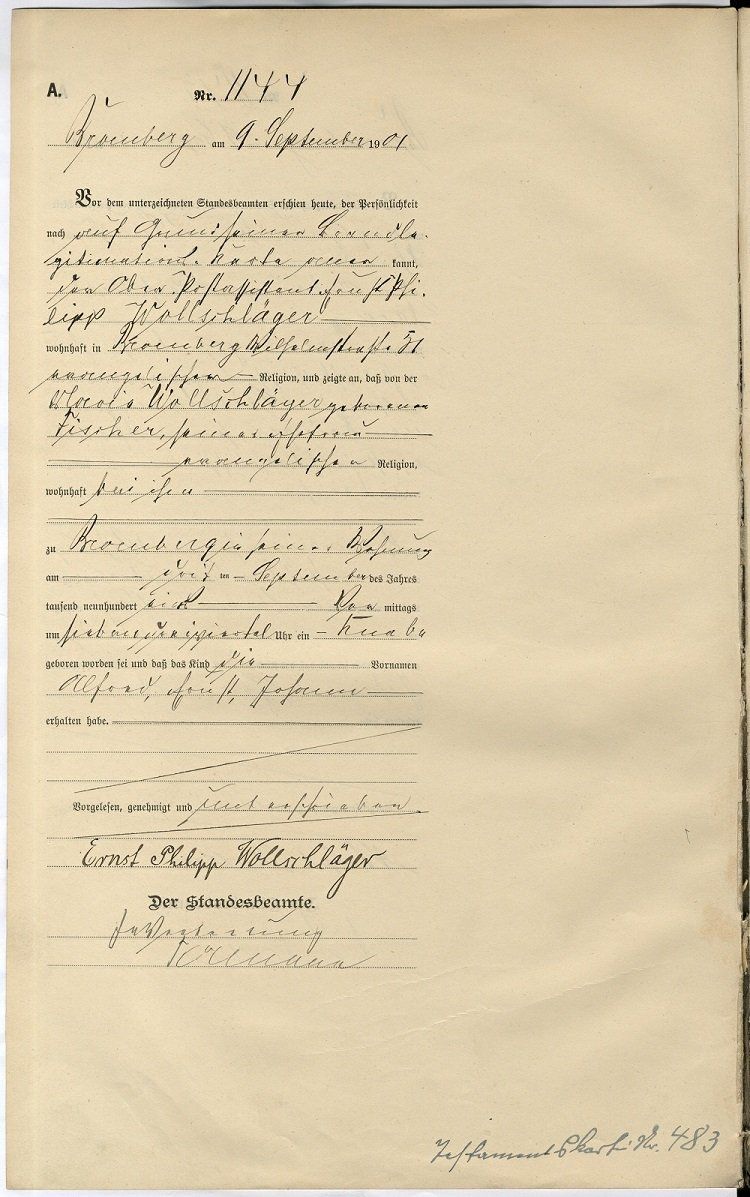 A.
Nr. 1144
Bromberg am 9. September 1901
Vor dem unterzeichneten Standesbeamten erschien heute, der Persönlichkeit
nach auf Grund seiner
gitimations-Karte aner kannt,
der Ober-Postassistent Ernst Phi-
lipp Wollschläger
wohnhaft in Bromberg Wilhelmstraße 51
evangelischer Religion, und zeigte an, daß von der
Wollschläger geborenen
Fischer, seiner Ehefrau
evangelischer Religion,
wohnhaft bei ihm
zu Bromberg in seiner Wohnung
am drit ten September des Jahres
tausend neunhundert eins Vor mittags
um sieben dreiviertel Uhr ein Knabe
geboren worden sei und daß das Kind die Vornamen
Alfred, Ernst, Johann
erhalten habe.
Vorgelesen, genehmigt und unterschrieben
Ernst Philipp Wollschläger
Der Standesbeamte.
In Vertretung
Testamentskartei Nr. 483